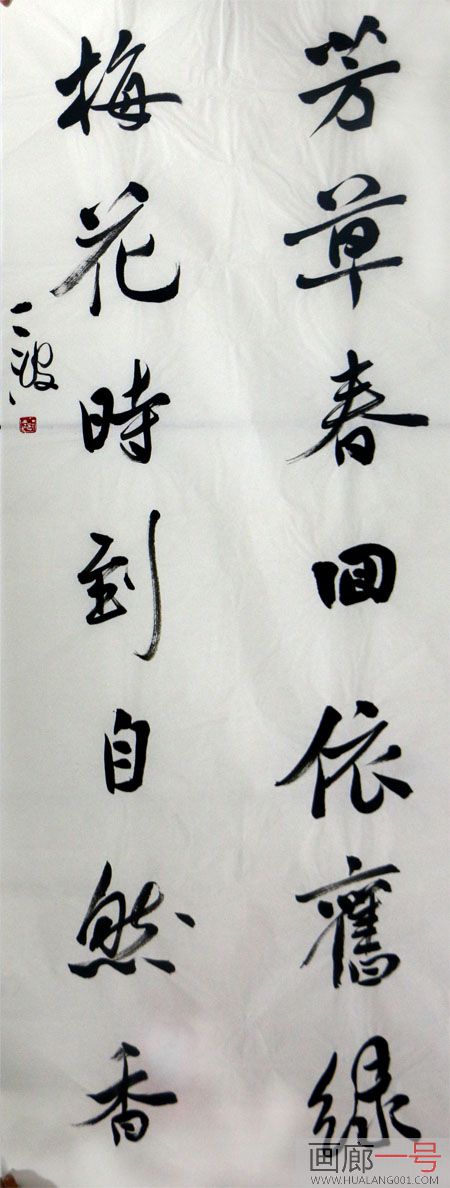 芳草春回依舊綠
梅花時到自然香
画廊一号
WWW.HUALANG001.COM